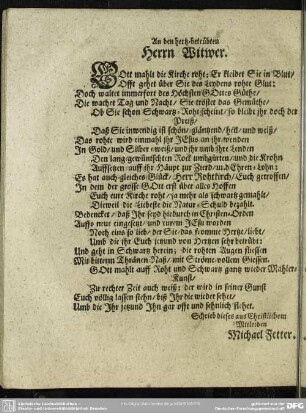 An den hertz-betrübten
Herrn Witwer.
GOtt mahlt die Kirche roht; Er kleidet Sie in Blut/
Offt gehet über Sie des Leydens rohte Glut:
Doch waltet immerfort des Höchsten GOttes Güthe/
Die wachet Tag und Nacht/ Sie tröstet das Gemüthe/
Ob Sie schon Schwartz-Roht scheint/ so bleibt ihr doch der
Preiß/
Daß Sie inwendig ist schön/ gläntzend/ hell/ und weiß/
Das rohte wird einmahl ihr JEsus an ihr wenden
In Gold/ und Silber-weiß/ und ihr umb ihre Lenden
Den lang gewünschten Rock umbgürten/ und die Krohn
Auffsetzen auff ihr Häupt zur Zierd/ und Ehren-Lohn;
Es hat auch gleiches Glück/ Herr Rohtkirch/ Euch getroffen/
In dem der grosse GOtt erst über alles Hoffen
Euch eure Kirche roht/ ja mehr als schwartz gemahlt/
Dieweil die Liebste der Natur-Schuld bezahlt.
Bedencket/ daß Ihr seyd hiedurch in Christen-Orden
Auffs neue eingesetzt/ und eurem JEsu worden
Noch eins so lieb/ der Sie/ das fromme Hertze/ liebt/
Umb die ihr Euch jetzund von Hertzen sehr betrübt/
Und geht in Schwartz herein; die rohten Augen fliessen
Mit bitterm Thränen-Naß/ mit Ström-vollem Giessen.
GOtt mahlt auff Roht und Schwartz gantz wieder Mahlers-
Kunst/
Zu rechter Zeit auch weiß: der wird in seiner Gunst
Euch völlig lassen stehn/ biß Ihr die wieder sehet/
Umb die Ihr jetzund Ihn gar offt und sehnlich flehet.
Schrieb dieses aus Christlichem
Mitleiden
Michael Zetter.